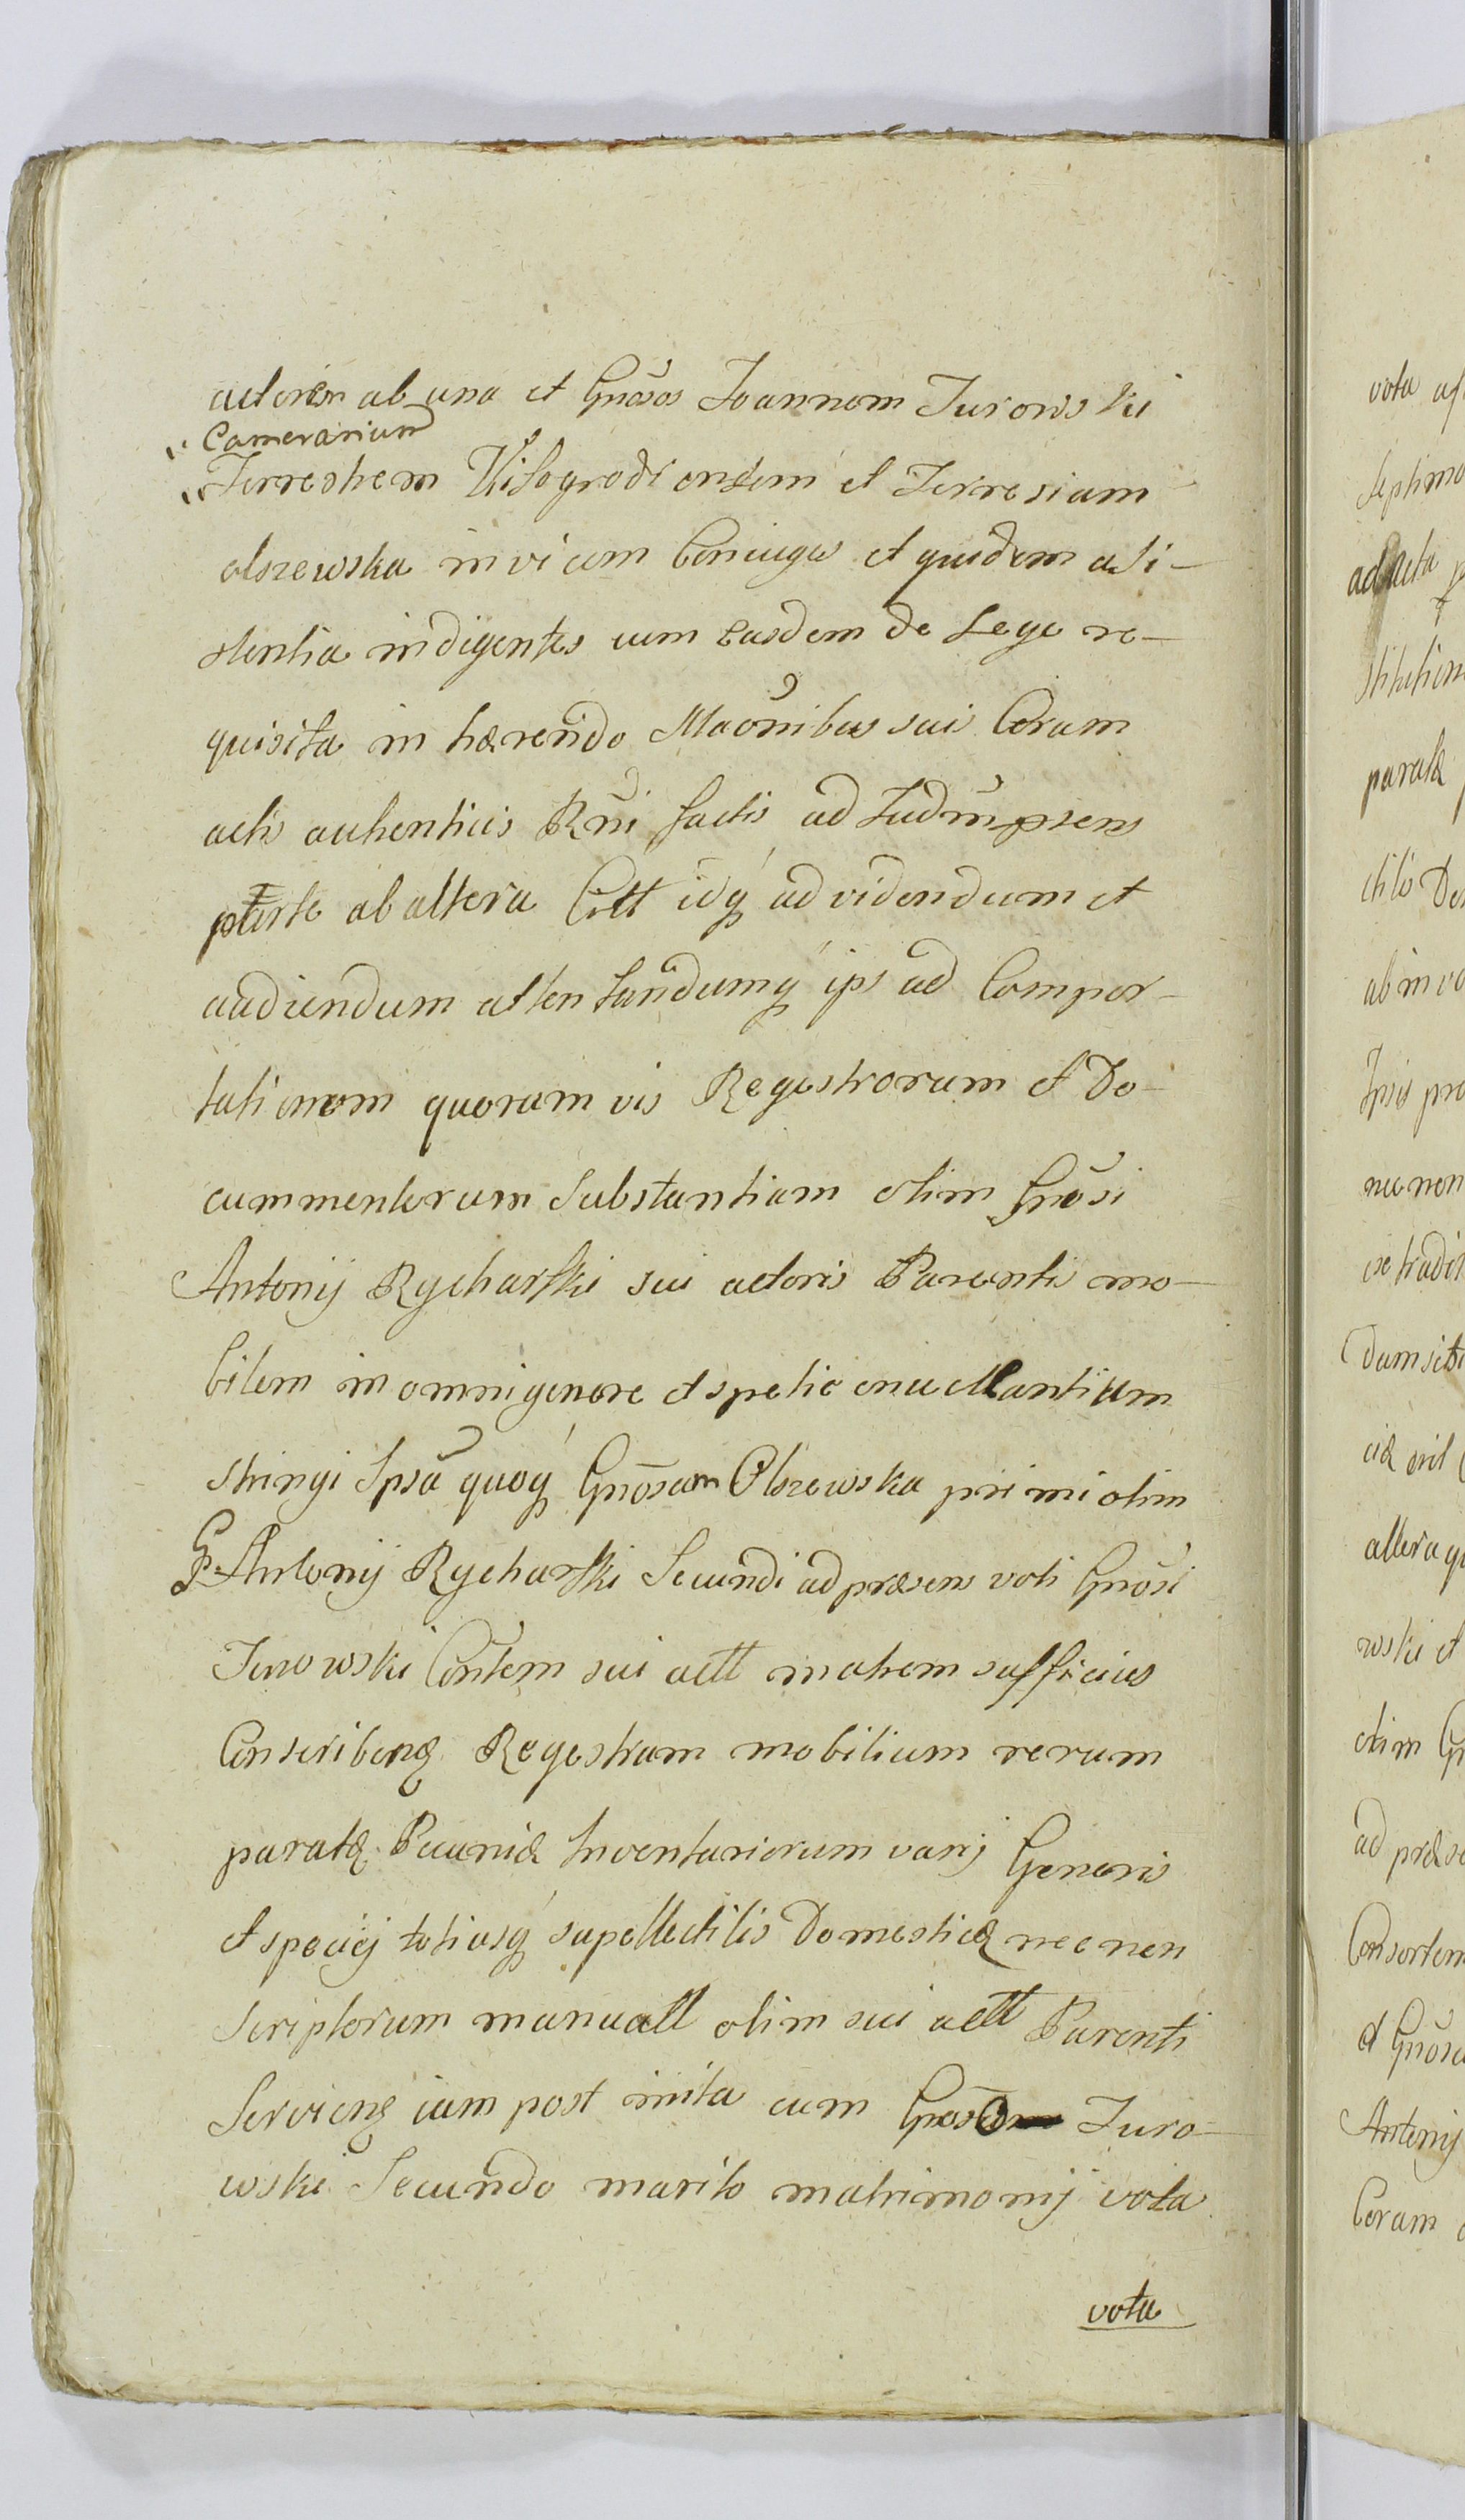 actorem ab una et Gnősos Joannem Turowski
" Camerarium
" Terrestrem Visogrodiensem et Terresiam
olszewska invicem Coniuges et quidem assi-
stentia indigentes cum Easdem de Lege re-
quisita in hærendo Maőnibus suis Coram
actis authenticis Rñi factis ad Judm̃ psens
parte ab altera Citt idq̨ ad videndum et
audiendum attentandumq̨ ips ad Compor-
tationem quorum vis Regestrorum et Do-
cummentorum Substantiam olim Gnősi
Antonij Rycharski sui actoris Parentis mo-
bilem in omni genere et spetie enucleantium
stringi Ipsã quoq̨ Gnősam Olszewska primi olim
G. Antonij Rycharski Secundi ad præsens voti Gnősi
Turowski Cőntem sui actt matrem sufficiens
Conscribenę Regestrum mobilium rerum
paratę Pecuniæ Inventariorum varij Generis
et speciej totiusq̨ supellectilis Domesticæ nec non
scriptorum manuall olim sui actt Parenti
Servienę iam post inita cum Gnőso Turo-
wski Secundo marito matrimonij vota
vota
vota
septimo
ad acta
stitution
paratæ
ctilis Do
ab in
Ipsis pro
nec non
se tradit
dum sibi
altera
wski et
olim
ad præse
Consortem
et Gnősa
Antonij
Coram